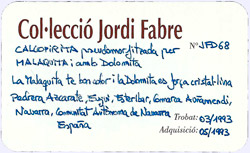 Col·lecció Jordi Fabre
CALCOPIRITA pseudomorfitzada per Nº JFD68
MALAQUITA i amb Dolomita
La Malaquita te bon color i la Dolomita es força cristal·lina
Pedrera Azcarate, Eugui, Esteribar, Comarca Auñamendi,
Navarra, Comunitat Autònoma de Navarra Trobat: 03/1993
España Adquisició: 05/1993